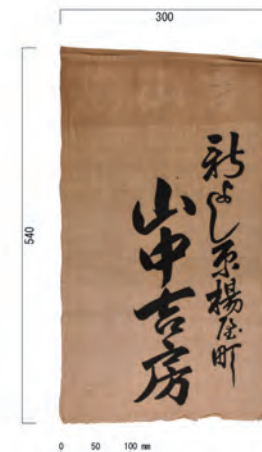 300
540
新よし原揚屋町
山中吉房
0 50 100 mm